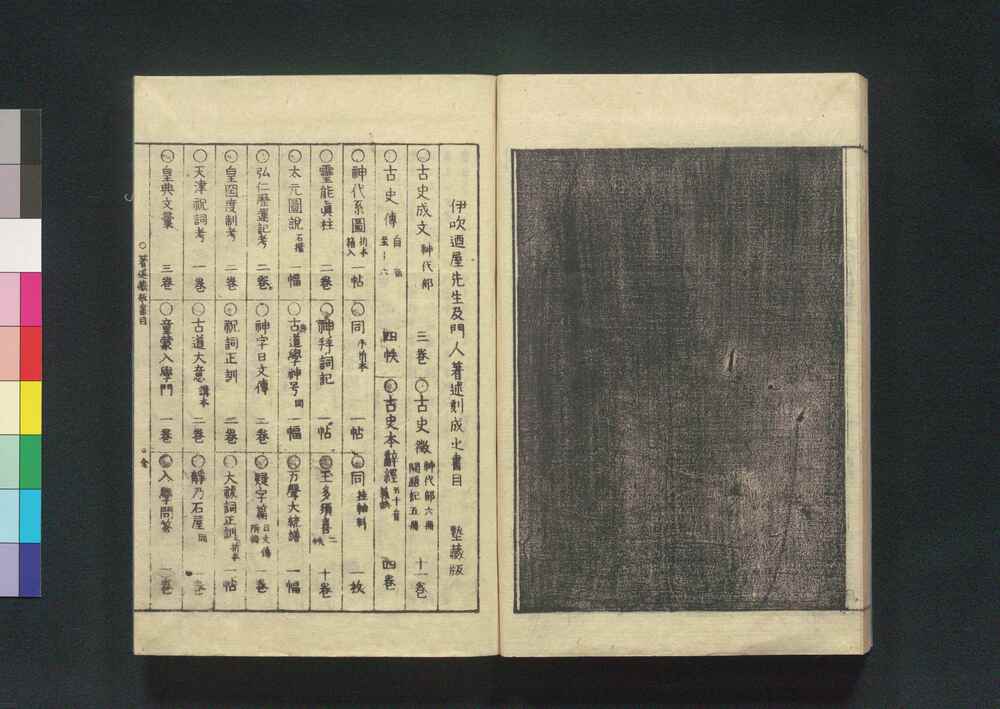 伊吹廼屋先生及門人著述刻成之書目 塾藏版
○古史成文 神代部 三巻 ○古史徴 神代部六冊 開題記五冊 十一巻
○古史傳 四帙 ○古史本辭經 四巻
○神代系圖 折本箱入 一帖 ○同 折本 一帖 ○同 掛軸料 一枚
○靈能眞柱 二巻 ○神拜詞記 一帖 ○玉多須喜 二帙 十巻
○太元圖說 石摺 一幅 ○古道學神号 同 一幅 ○万聲大統譜 一幅
○弘仁歷運記考 二巻 ○神字日文傳 二巻 ○疑字篇 日文傳附録 一巻
○皇國度制考 二巻 ○祝詞正訓 二巻 ○大祓詞正訓 折本 一帖
○天津祝詞考 一巻 ○古道大意 講本 二巻 ○靜乃石屋 同 二巻
○皇典文彙 三巻 ○童蒙入學門 一巻 ○入學問荅 一巻
○著述藏板書目